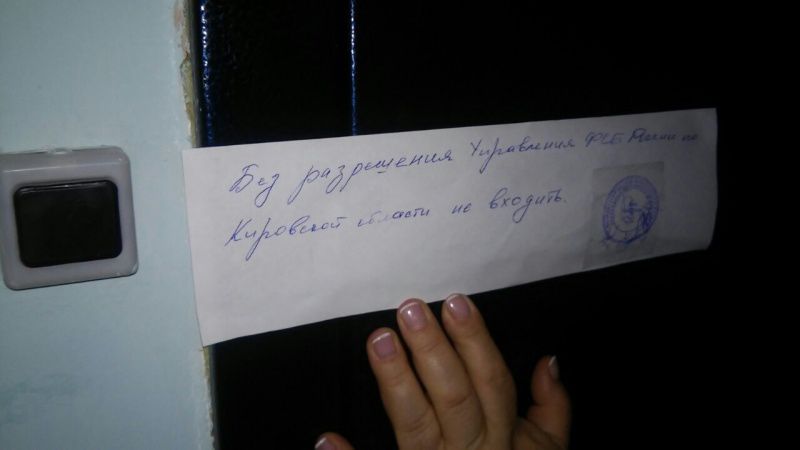 Без разрешения Управления ФСБ России по
Кировской области не входить.